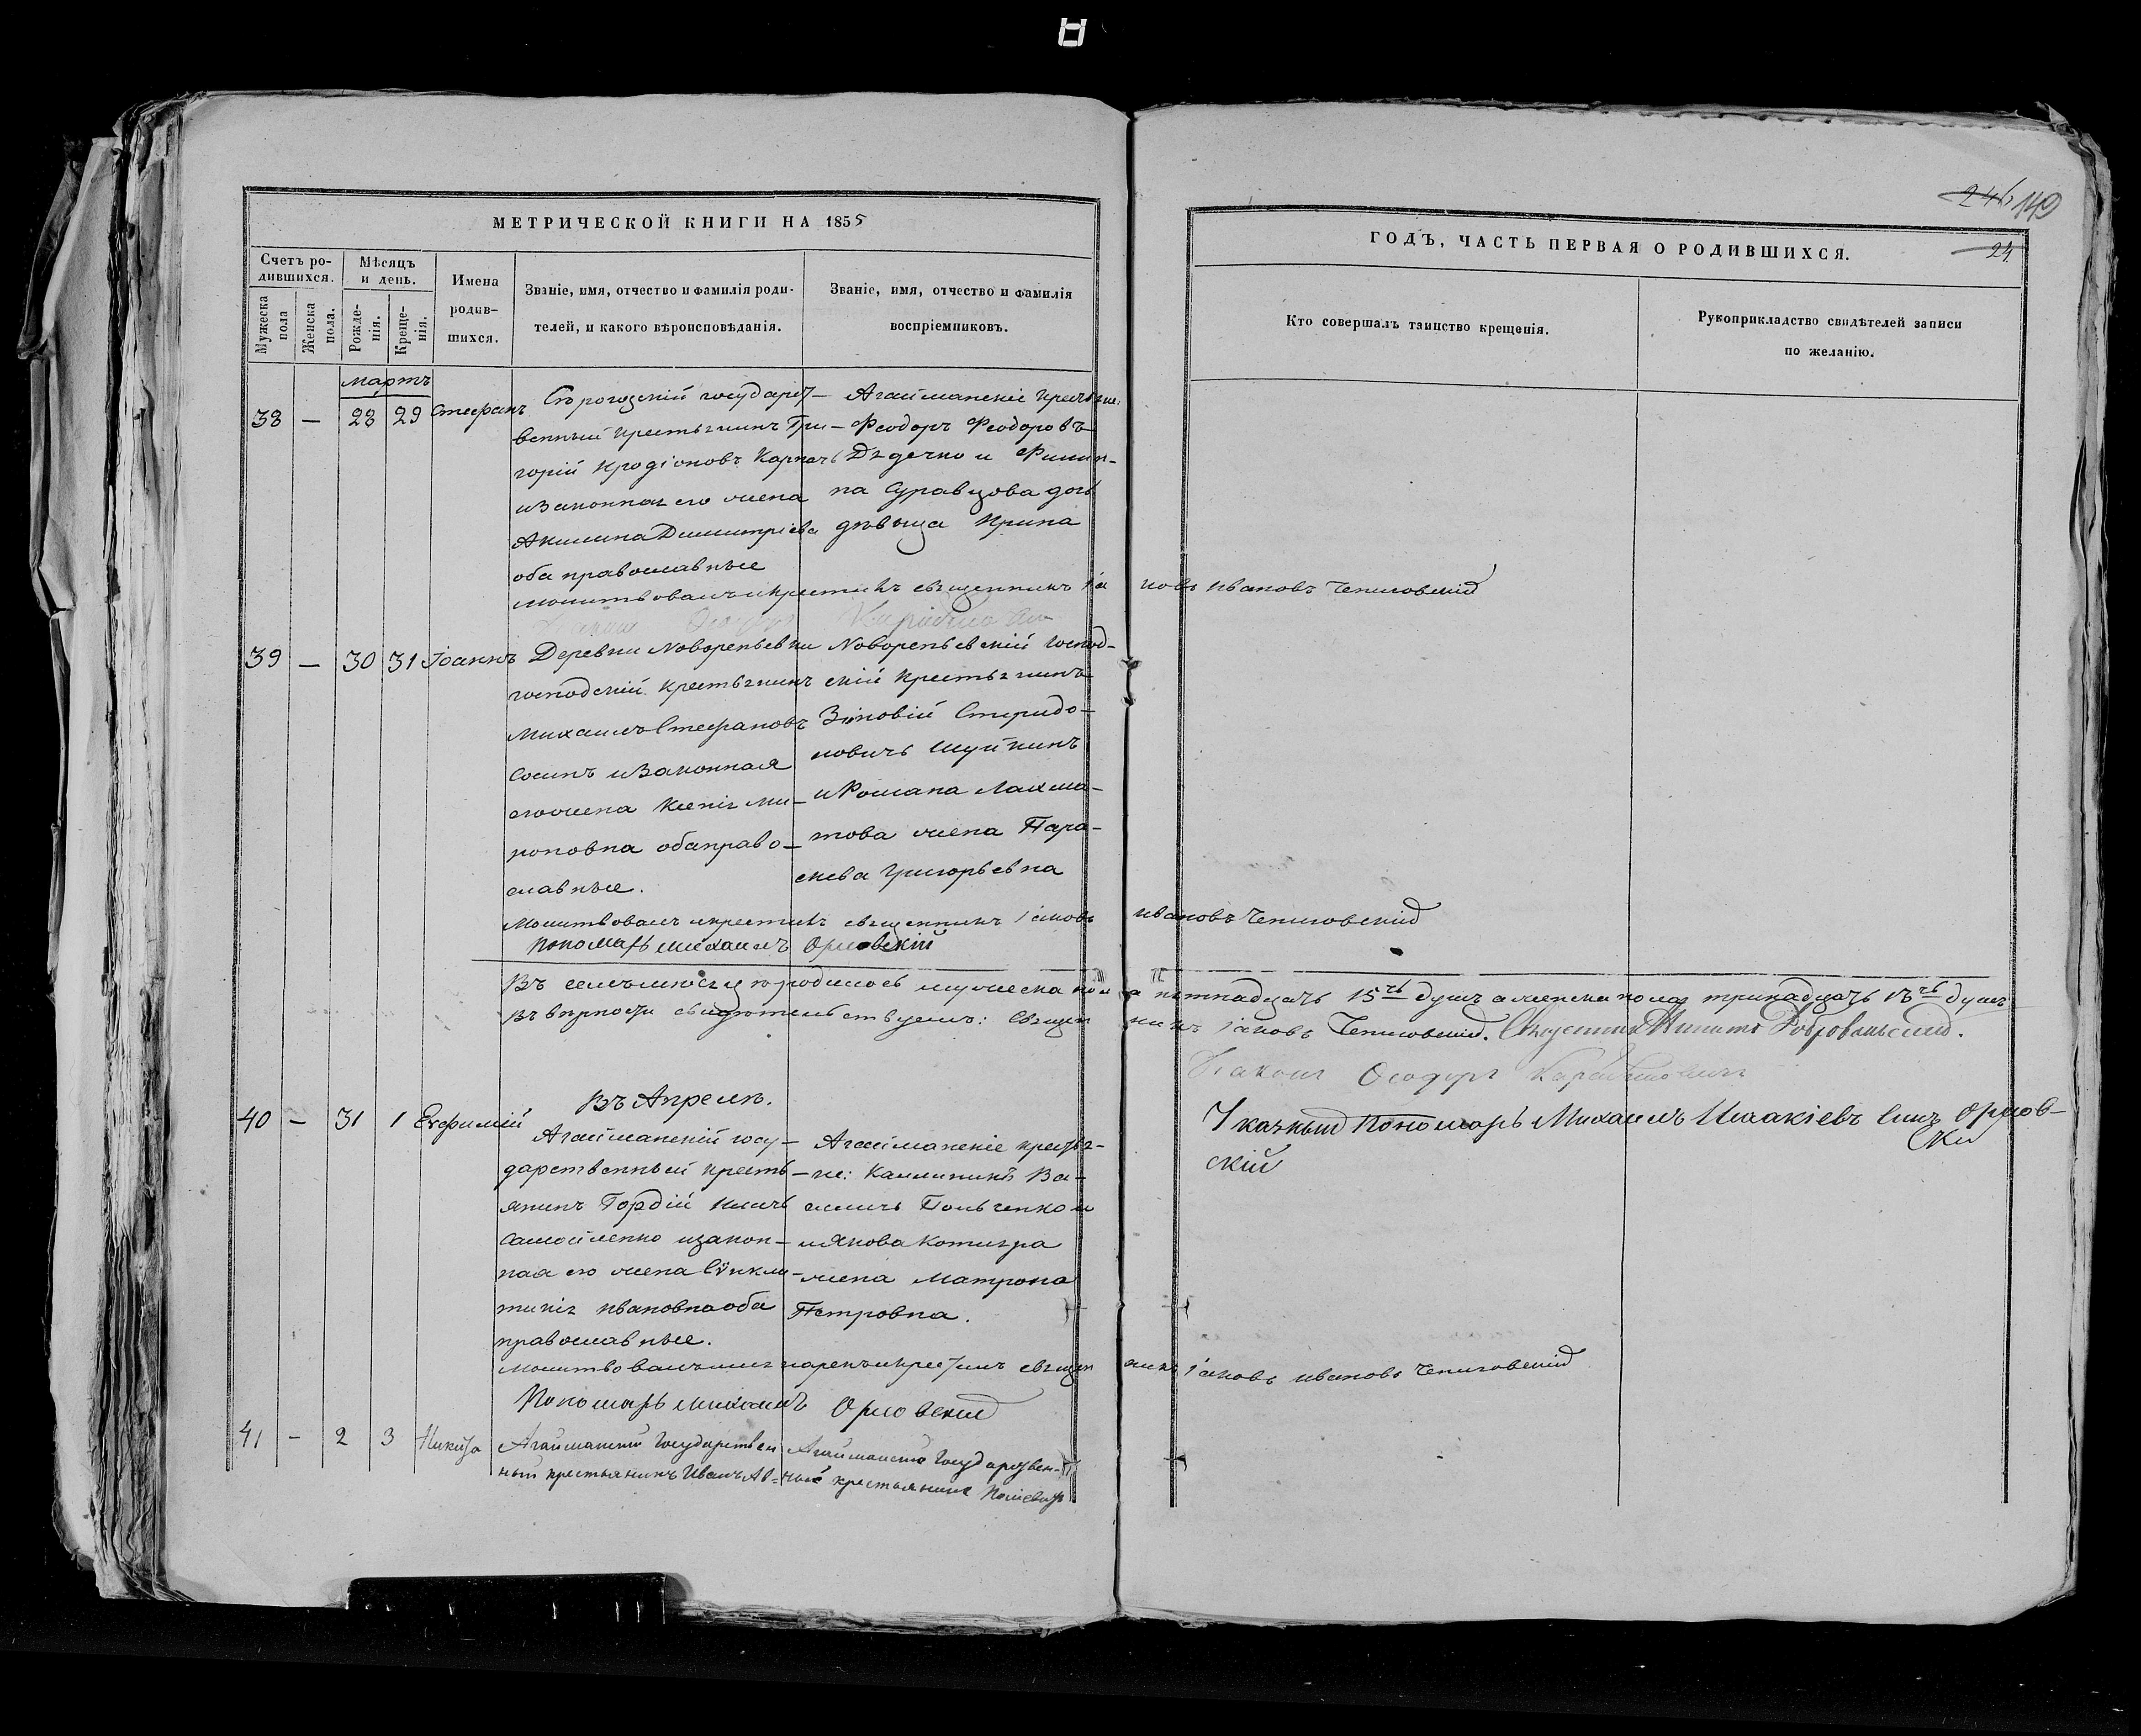 246 149
МЕТРИЧЕСКОЙ КНИГИ НА 1855
ГОДЪ, ЧАСТЬ ПЕРВАЯ О РОДИВШИХСЯ.
24
Счетъ ро-
дившихся.
Мужеска пола
Женска пола.
Мѣсяцъ
и день.
Рожде-
нія.
Креще-
нія.
Имена
родив-
шихся.
Званіе, имя, отчество и фамилія роди-
телей, и какого вѣроисповѣданія.
Званіе, имя, отчество и фамилія
воспріемниковъ.
Кто совершалъ таинство крещенія.
Рукоприкладство свидѣтелей записи
по желанію.
мартъ
38 — 28 29 Стефанъ
государст-
венный крестьянинъ Гри-
горій Иродіоновъ
и законная его жена
Акилина Димитріева
оба православные
Агайманскіе крестьяне:
Феодоръ Феодоровъ
Дядечко и Филип-
па Суравцова дочь
дѣвица Ирина
Молитвовалъ и крестилъ священникъ Іаковъ Ивановъ
39 — 30 31 Іоаннъ
Деревни Новорепьевки
господскій крестьянинъ
Михаилъ Стефановъ
Сосинъ и законная
его жена Ксенія Ми-
роновна оба право-
славные.
Новорепьевскій господ-
скій крестьянинъ
Зиновій Спиридо-
новичъ
и Романа Лахма-
това жена Пара-
скева Григорьевна
Молитвовалъ и крестилъ священникъ Іаковъ Ивановъ
Пономарь Михаилъ Орловскій
Въ семъ мѣсяцѣ родилось мужеска пола пятнадцать 15ть душъ а женска пола тринадцать 13ть душъ
Въ вѣрности свидѣтельствуемъ: Священникъ Іаковъ
Діаконъ Феодоръ
Указный Пономарь Михаилъ Орлов-
скій
Въ Апрелѣ.
40 — 31 1 Евфимій
Агайманскій госу-
дарственный кресть-
янинъ Гордій Ильичъ
Самойленко и закон-
ная его жена Сүнкли-
тикія Ивановна оба
православные.
Агайманскіе крестья-
не: Каллиникъ Ва-
сильичъ
и Якова
жена Матрона
Петровна.
Молитвовалъ имя нарекъ и крестилъ священникъ Іаковъ Ивановъ
Пономарь Михаилъ Орловскій
41 — 2 3 Никита
Агайманскій Государствен
ный крестьянинъ Иванъ
Агайманскіе Государствен-
ные крестьяне